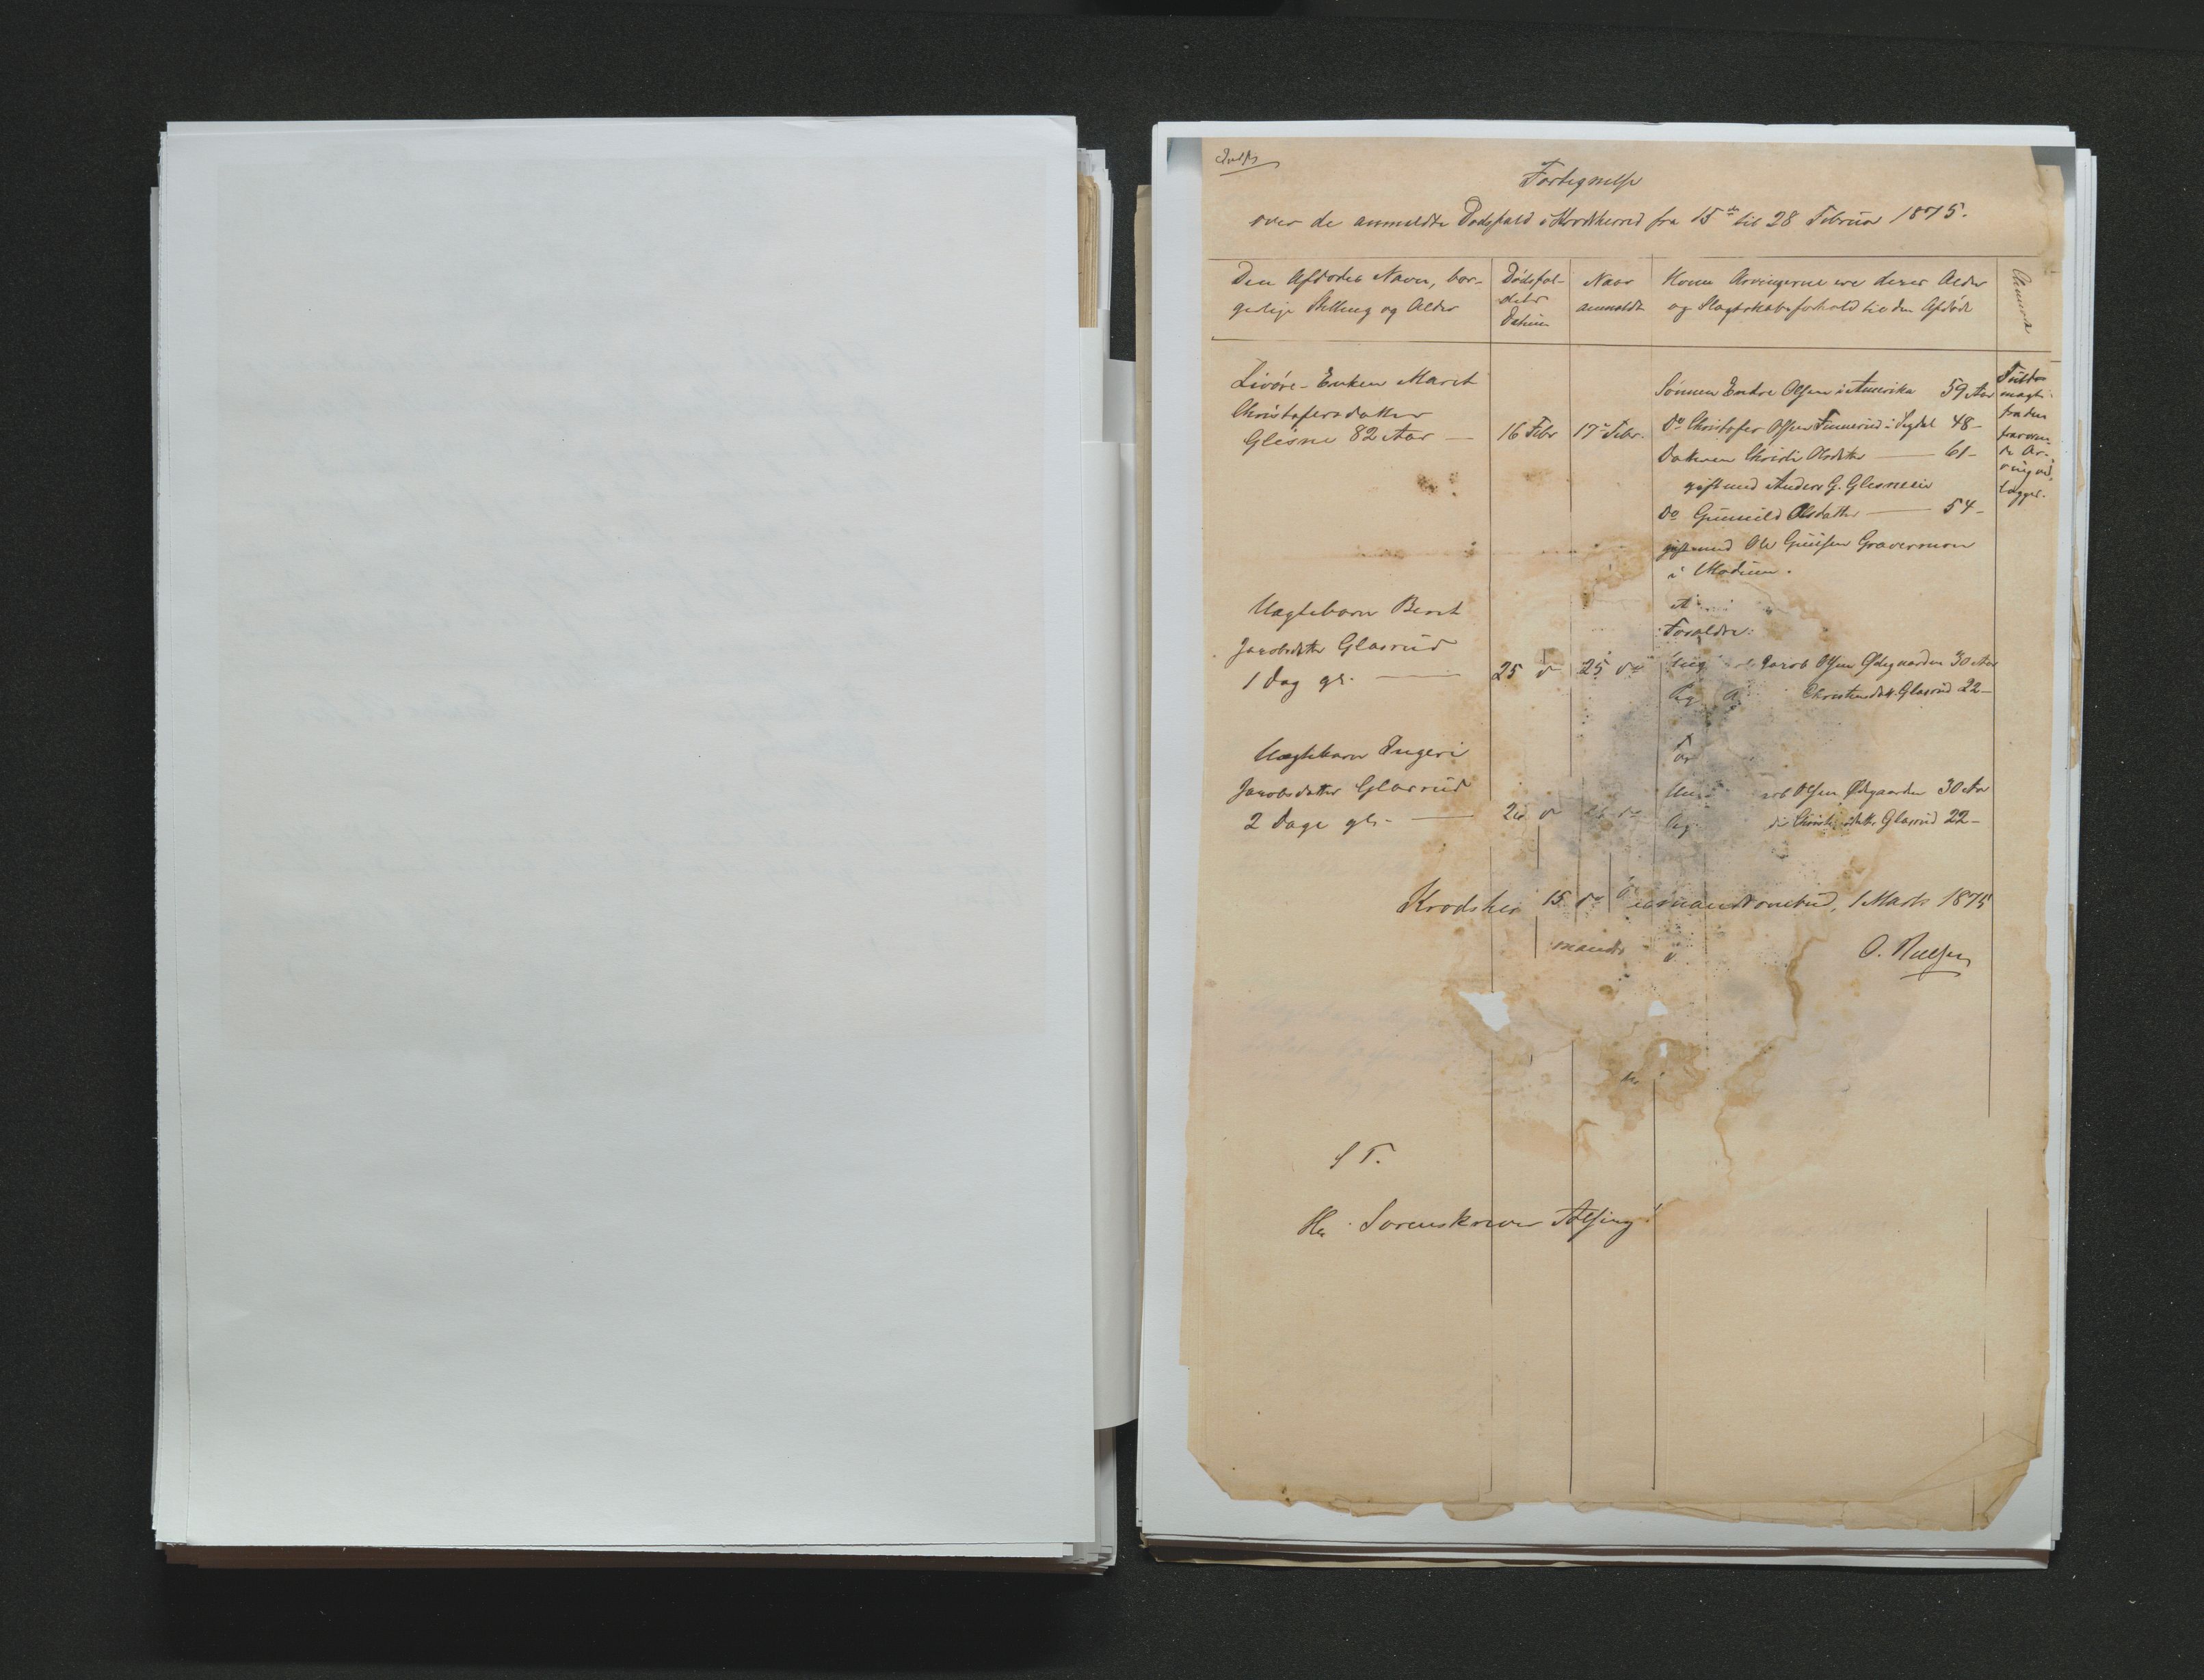 Fortegnelse
over de anmeldte Dødsfald i Krødsherred fra 15de til 28 Februar 1875.
Den Afdødes Navn, bor-
gerlige Stilling og Alder
Dødsfal-
dets
Datum
Naar
anmeldt
Hvem Arvingerne ere deres Alder
og Slægtskabsforhold til den Afdøde
Anmærk
Livøre-Enken Marit
Christofersdatter
Glesne 82 Aar —
16 Febr
17de Febr.
Sønnen Endre Olsen i Amerika 59 Aar
Do Christofer Olsen Finnerud i Sigdal 48 -
Datteren Christi Olsdatter — 61 -
gift med Anders G. Glesneeie
Do Gunnild Olsdatter — 54 -
gift med Ole Guulsen Gravermoen
i Modum.
Fuld-
magt
fra den
fraværen-
de Ar-
ving ved-
lægges.
Uægtebarn Berit
Jacobsdatter Glasrud
1 Dag gl. —
25 do
25 do
Forældre:
Ung Jacob Olsen Ødegaarden 30 Aar
Pig Christensdatt. Glasrud 22 -
Uægtebarn Ingeri
Jacobsdatter Glasrud
2 Dage gl. —
26 do
26 do
Olsen Ødegaarden 30 Aar
Glasrud 22 -
Krødsher 1 Marts 1875
O. Nilsen
S T.
Hr. Sorenskriver Alsing!